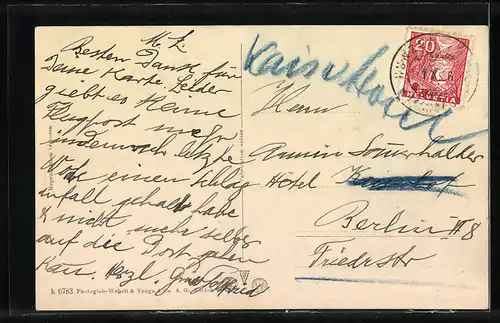 M. L.
Besten Dank für
Deine Karte. Leider
giebt es keine
Flugpost mehr
indem ich letzte
Woche einen Schlag
anfall gehabt habe
& nicht mehr selber
auf die Post gehen
kan. Herzl. Gruss
Kaiserhof
Herrn
Armin Sauerhalder
Hôtel
Berlin W 8
Friedrstr
20
HELVETIA
k 6783 Photoglob-Wehrli & Vouga & Co. A. G., Zürich